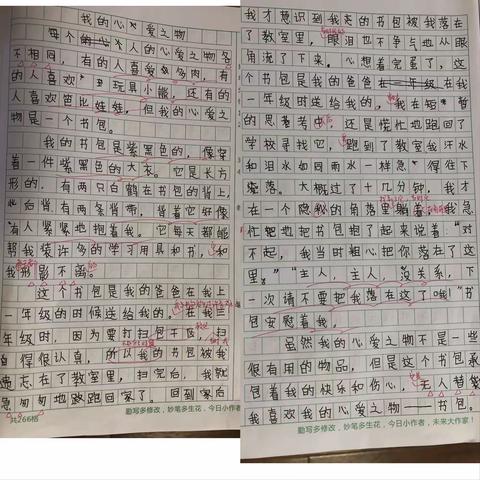 我的心爱之物
每个人的心爱之物各
不相同，有的人喜欢多肉，有
的人喜欢玩具小熊，还有的
人喜欢芭比娃娃，但我的心爱之
物是一个书包。
我的书包是紫黑色的，像穿
着一件紫黑色的大衣。它是长方
形的，有两只白鹤在书包的背上
背着它好像
有人紧紧地抱着我。它每天都能
帮我装许多的学习用具和书，和
我形影不离。
这个书包是我的爸爸在我上
一年级的时候送给我的，在我三
年级时，因为要打扫包干区，扫
得很认真，所以我的书包被我
遗忘在了教室里，扫完后，我就
急匆匆地跑回家了。回到家后
共266格
勤写多修改，妙笔多生花，今日小作者
我才意识到我的书包被我落在
了教室里，眼泪也不争气地从眼
角流了下来。心想着完蛋了，这
个书包是我的爸爸在我
一年级时送给我的，我在短暂
的思考中，还是慌忙地跑回了
学校寻找它，跑到了教室我汗水
和泪水如同雨水一样急得往下
落。大概过了十几分钟，我才
在一个隐秘的角落里躺着，我急
忙地把书包抱了起来说着“对
不起，我当时粗心把你落在了这
里。”“主人，主人，没关系，下
一次请不要把我落在这了哦！”书
包安慰着我。
虽然我的心爱之物不是一些
很有用的物品，但是这个书包承
包着我的快乐和伤心，无人替代
我喜欢我的心爱之物——书包。
勤写多修改，妙笔多生花，今日小作者，未来大作家！